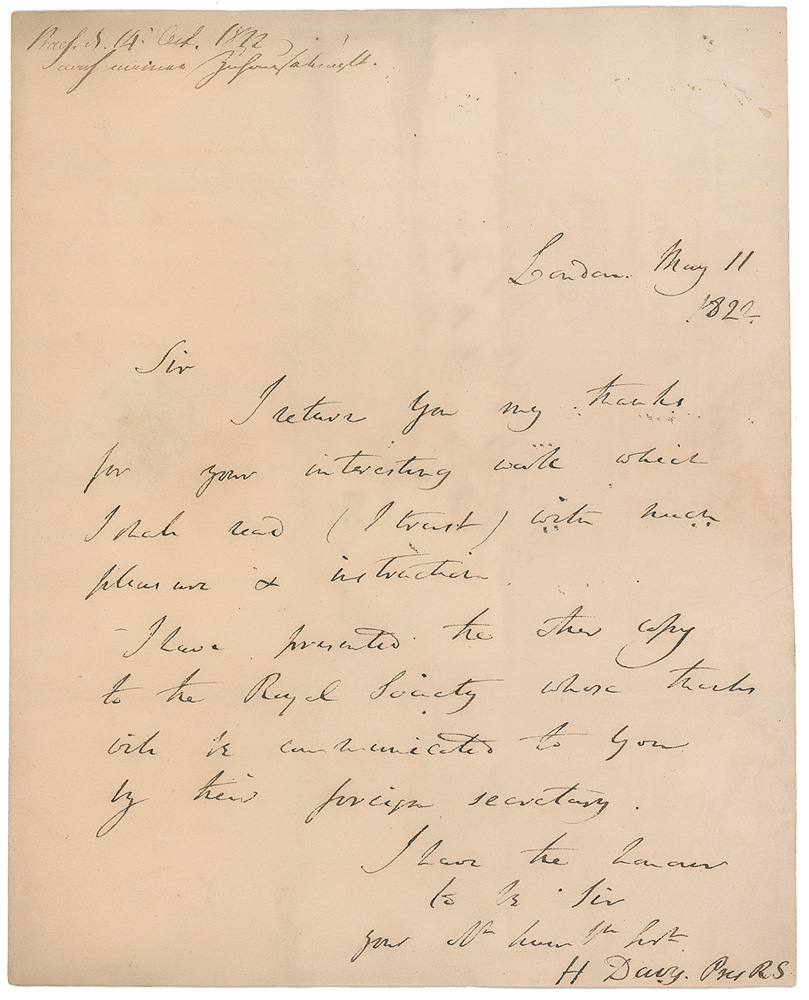 14. Oct. 1822
London. May 11
1822.
Sir
I return you my thanks
for your interesting work which
I shall read (I trust) with much
pleasure & instruction.
- I have presented the other copy
to the Royal Society whose thanks
will be communicated to you
by their foreign secretary.
I have the honour
to be Sir
your Ob hum Sert
H Davy. Pres RS